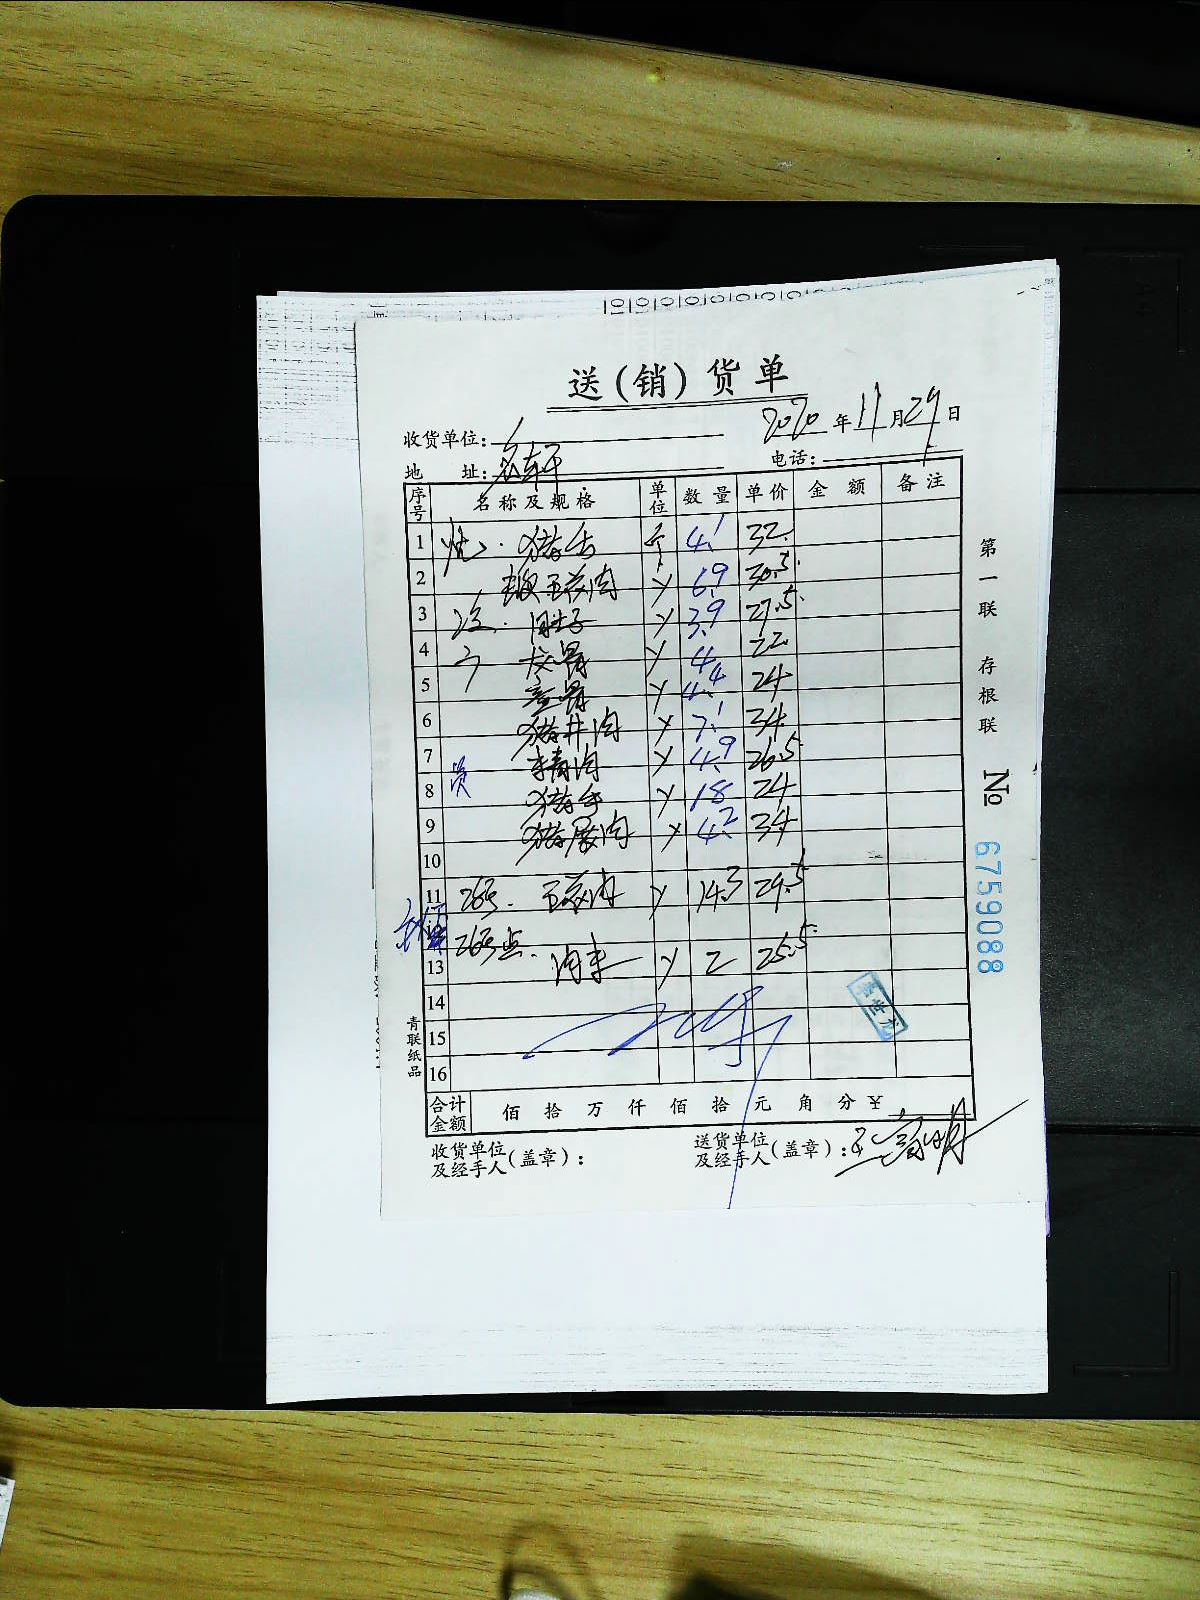 送(销)货单
收货单位: 2020年11月29日
地 址:名轩 电话:
序号 名称及规格 单位 数量 单价 金额 备注
1 烧 猪手 斤 4.1 32
2 五花肉 y 6.9 30.5
3 肚子 y 3.9 27.5
4 龙骨 y 4 22
5 童骨 y 4.4 24
6 猪 肉 y 7.1 34
7 精肉 y 4.9 26.5
8 猪手 y 18 24
9 猪展肉 y 4.2 34
10
11 五花肉 y 14.3 29.5
13 肉 y 2 25.5
14
15
16
合计金额 佰 拾 万 仟 佰 拾 元 角 分 ¥
收货单位及经手人(盖章): 送货单位及经手人(盖章):
第一联 存根联
No 6759088
青联纸品